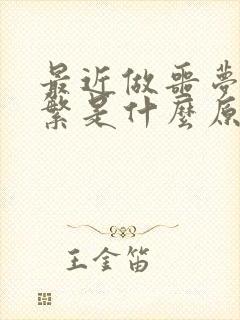 最近做噩夢
繁是什麼原
王金笛